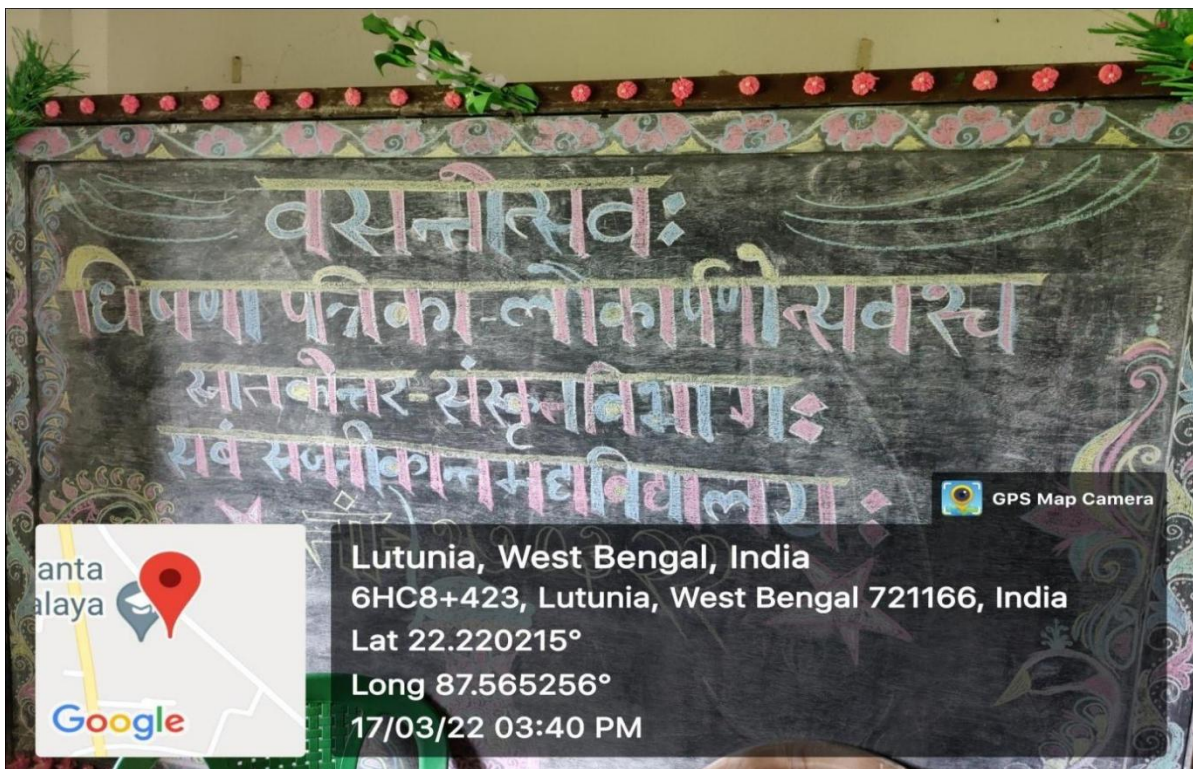 वसन्तोत्सवः
धिषणा पत्रिका-लोकार्पणोत्सवश्च
स्नातकोत्तर-संस्कृतविभागः
सबं सजनीकान्तमहाविद्यालयः
GPS Map Camera
Lutunia, West Bengal, India
6HC8+423, Lutunia, West Bengal 721166, India
Lat 22.220215°
Long 87.565256°
17/03/22 03:40 PM
anta
alaya
Google